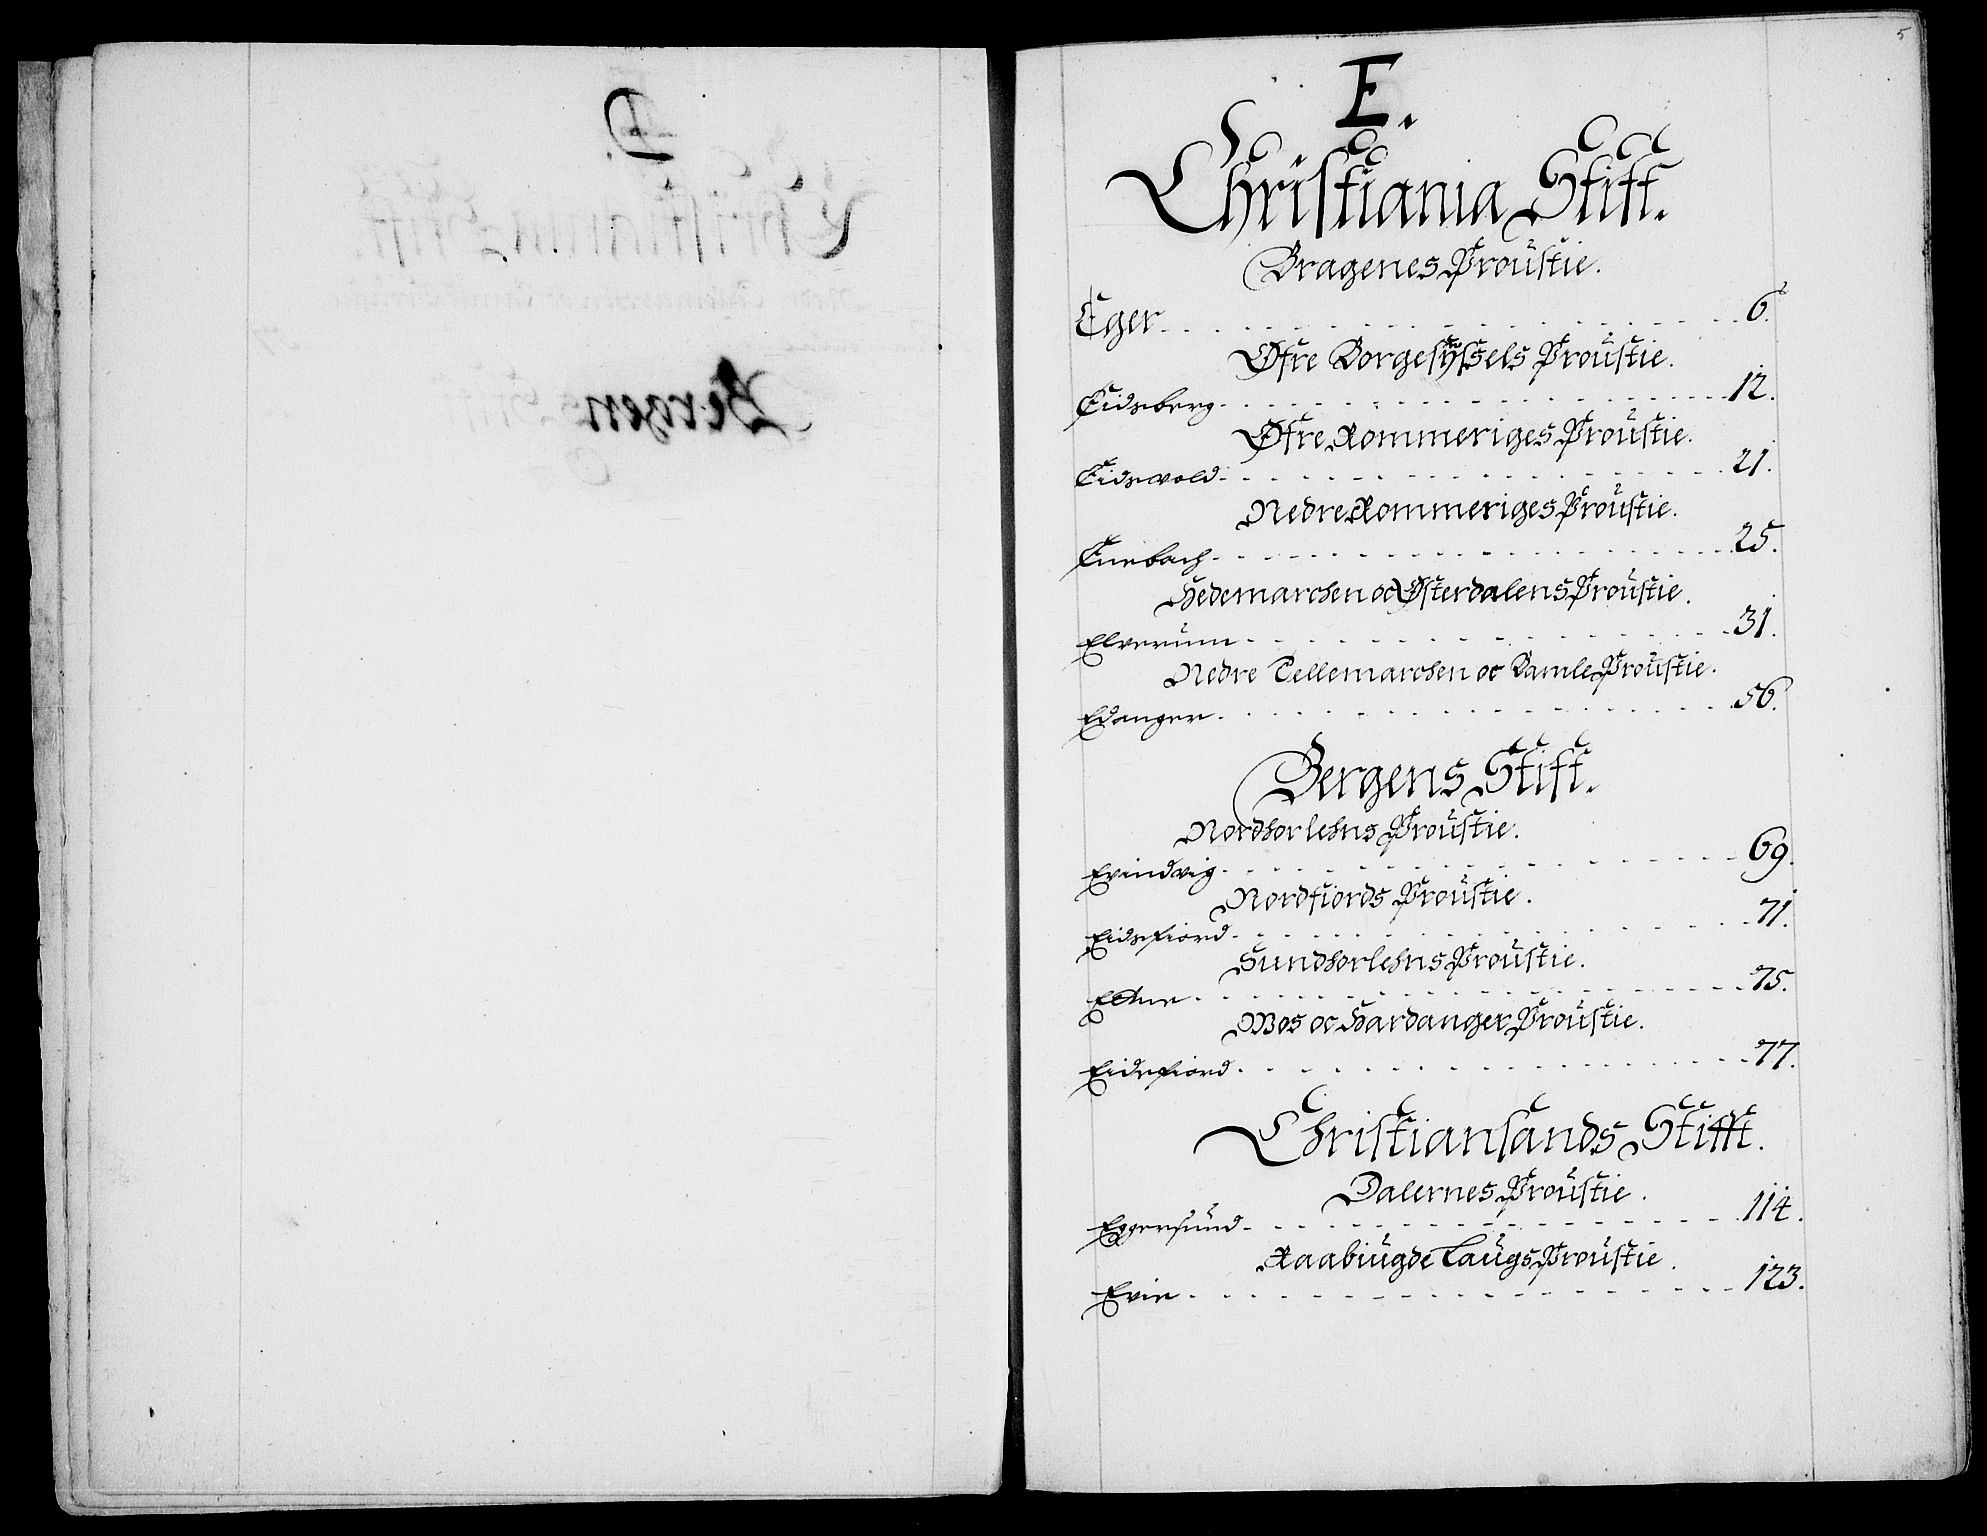 5
E.
Christiania Stift.
Bragenes Proustie.
Eger 6.
Øfre Borgesyssels Proustie.
Eidsberg 12.
Øfre Rommeriges Proustie.
Eidsvold 21.
Nedre Rommeriges Proustie.
Enebach 25.
Hedemarchen oc Østerdalens Proustie.
Elverum 31.
Nedre Tellemarchen oc Bamle Proustie.
Edanger 56.
Bergens Stift.
Nordhorlehns Proustie.
Evindvig 69.
Nordfiords Proustie.
Eidsfiord 71.
Sundhorlehns Proustie.
Etne 75.
Wos oc Hardanger Proustie.
Eidefiord 77.
Christiansands Stifft.
Dalernes Proustie.
Eggersund 114.
Raabiugde Laugs Proustie.
Evie 123.